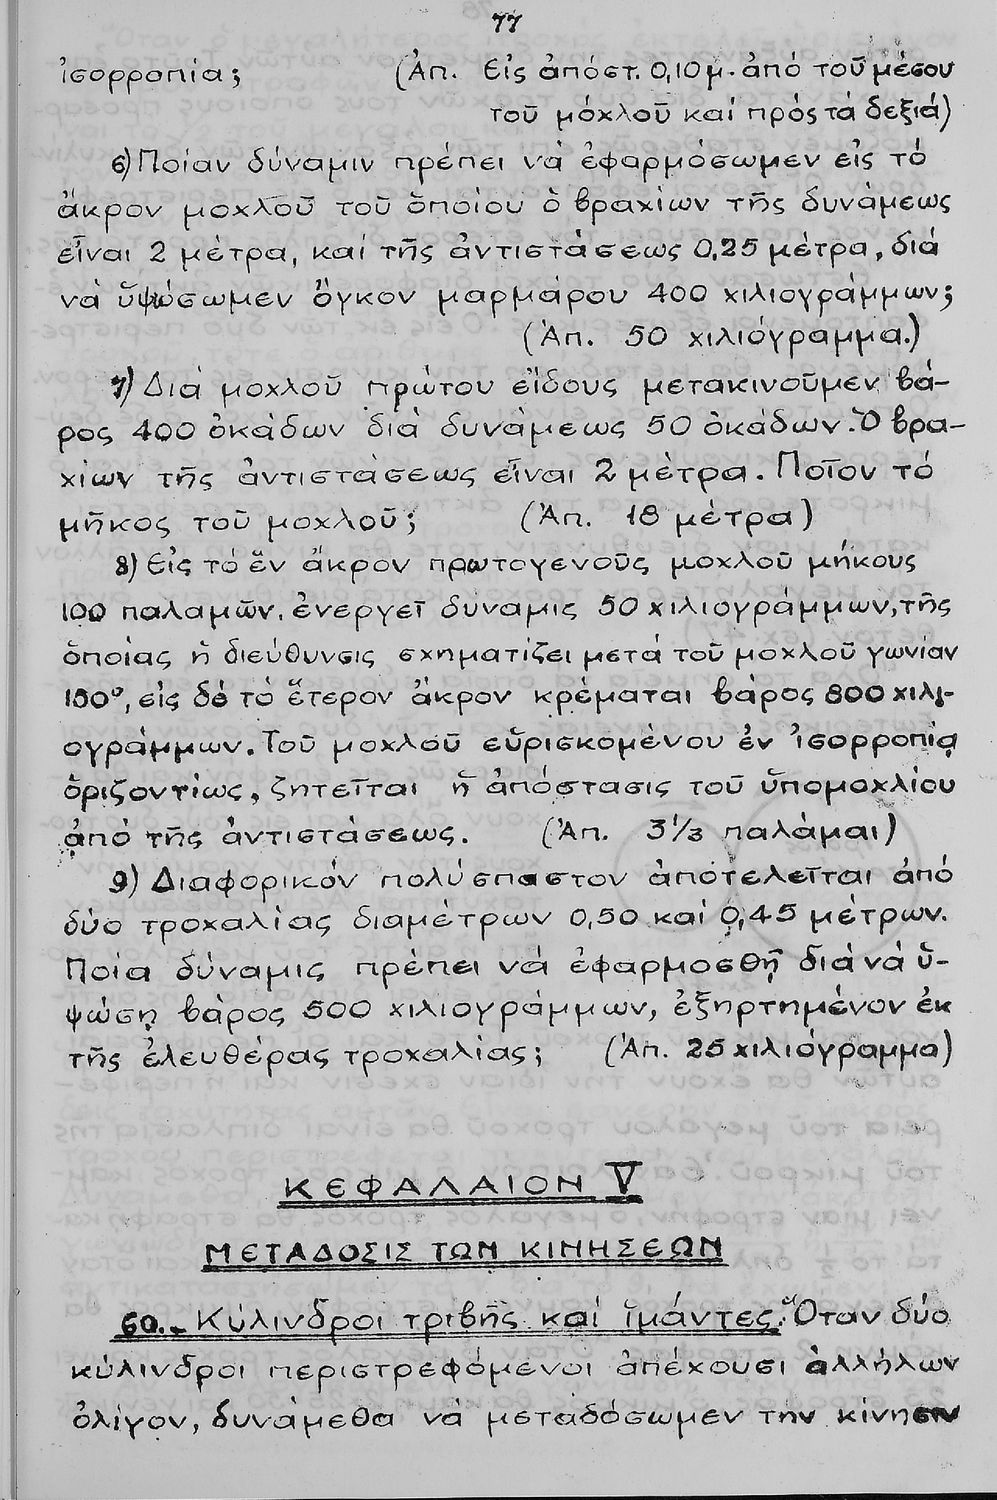 77
ἰσορροπία; (Ἀπ. Εἰς ἀπόστ. 0,10 μ. ἀπό τοῦ μέσου
τοῦ μόχλοῦ καί πρός τά δεξιά)
6) Ποίαν δύναμιν πρέπει νά ἐφαρμόσωμεν εἰς τό
ἄκρον μοχλοῦ τοῦ ὁποίου ὁ βραχίων τῆς δυνάμεως
εἶναι 2 μέτρα, καί τῆς ἀντιστάσεως 0,25 μέτρα, διά
νά ὑψώσωμεν ὄγκον μαρμάρου 400 χιλιογράμμων;
(Ἀπ. 50 χιλιόγραμμα.)
7) Διά μοχλοῦ πρώτου εἴδους μετακινοῦμεν βά-
ρος 400 ὀκάδων διά δυνάμεως 50 ὀκάδων. Ὁ βρα-
χίων τῆς ἀντιστάσεως εἶναι 2 μέτρα. Ποῖον τό
μῆκος τοῦ μοχλοῦ; (Ἀπ. 18 μέτρα)
8) Εἰς τό ἕν ἄκρον πρωτογενοῦς μοχλοῦ μήκους
100 παλαμῶν, ἐνεργεῖ δύναμις 50 χιλιογράμμων, τῆς
ὁποίας ἡ διεύθυνσις σχηματίζει μετά τοῦ μοχλοῦ γωνίαν
150°, εἰς δέ τό ἕτερον ἄκρον κρέμαται βάρος 800 χιλι-
ογράμμων. Τοῦ μοχλοῦ εὑρισκομένου ἐν ἰσορροπίᾳ
ὁριζοντίως, ζητεῖται ἡ ἀπόστασις τοῦ ὑπομοχλίου
ἀπό τῆς ἀντιστάσεως. (Ἀπ. 3 1/3 παλάμαι)
9) Διαφορικόν πολύσπαστον ἀποτελεῖται ἀπό
δύο τροχαλίας διαμέτρων 0,50 καί 0,45 μέτρων.
Ποία δύναμις πρέπει νά ἐφαρμοσθῇ διά νά ὑ-
ψώσῃ βάρος 500 χιλιογράμμων, ἐξηρτημένον ἐκ
τῆς ἐλευθέρας τροχαλίας; (Ἀπ. 25 χιλιόγραμμα)
ΚΕΦΑΛΑΙΟΝ V
ΜΕΤΑΔΟΣΙΣ ΤΩΝ ΚΙΝΗΣΕΩΝ
60.- Κύλινδροι τριβῆς καί ἱμάντες. Ὅταν δύο
κύλινδροι περιστρεφόμενοι ἀπέχουσι ἀλλήλων
ὀλίγον, δυνάμεθα νά μεταδόσωμεν τήν κίνησιν